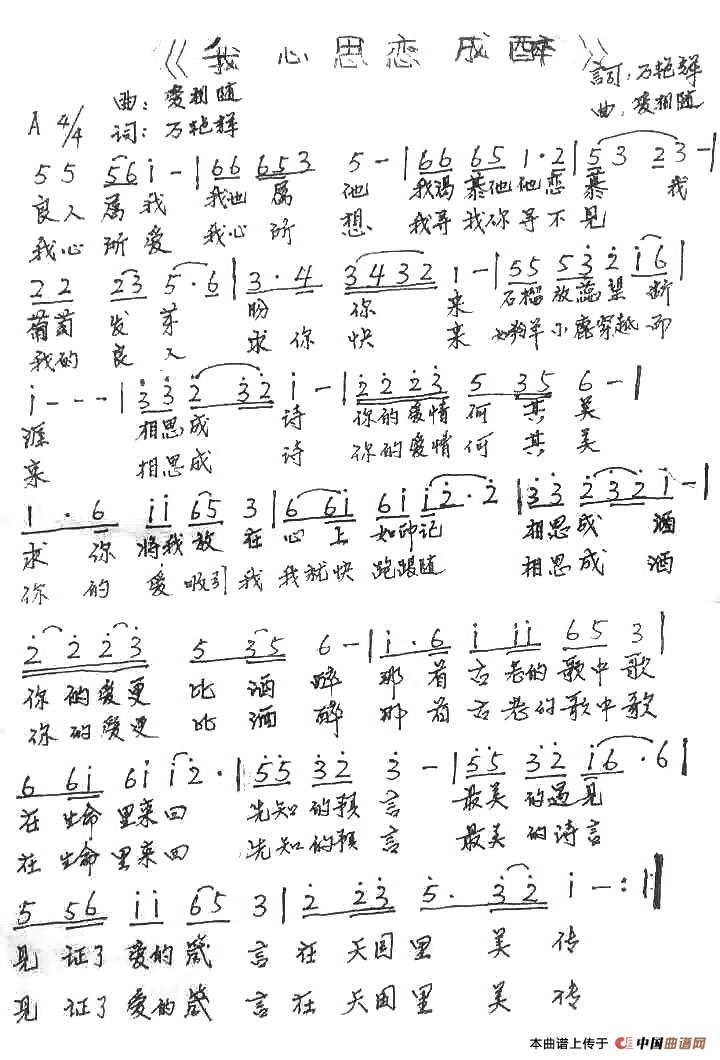 《我心思恋成醉》
詞：万艳辉
曲：爱相随
曲：爱相随
A 4/4 词：万艳辉
5 5 5 6 i - | 6 6 6 5 3 5 - | 6 6 6 5 1 · 2 | 5 3 2 3 - |
良人属我 我也属他 我渴慕他他恋慕我
我心所爱 我心所想 我寻我你寻不见
2 2 2 3 5 · 6 | 3 · 4 3 4 3 2 1 - | 5 5 5 3 2 i 6 |
葡萄发芽 盼你来 石榴放蕊望断
我的良人 求你快来 如羚羊小鹿穿越而
i - - - | 3 3 2 3 2 i - | 2 2 2 3 5 3 5 6 - |
涯 相思成诗 你的爱情何其美
来 相思成诗 你的爱情何其美
1 · 6 i i 6 5 3 | 6 6 i 6 i i 2 · 2 | 3 3 2 3 2 i - |
求你将我放在心上如印记 相思成酒
你的爱吸引我我就快跑跟随 相思成酒
2 2 2 3 5 3 5 6 - | i · 6 i i i 6 5 3 |
你的爱更比酒醉 那首古老的歌中歌
你的爱更比酒醉 那首古老的歌中歌
6 6 i 6 i i 2 · | 5 5 3 2 3 - | 5 5 3 2 i 6 · 6 |
在生命里来回 先知的预言 最美的遇见
在生命里来回 先知的预言 最美的诗言
5 5 6 i i 6 5 3 | 2 2 3 5 · 3 2 i - :||
见证了爱的箴言在天国里美传
见证了爱的箴言在天国里美传
本曲谱上传于 中国曲谱网